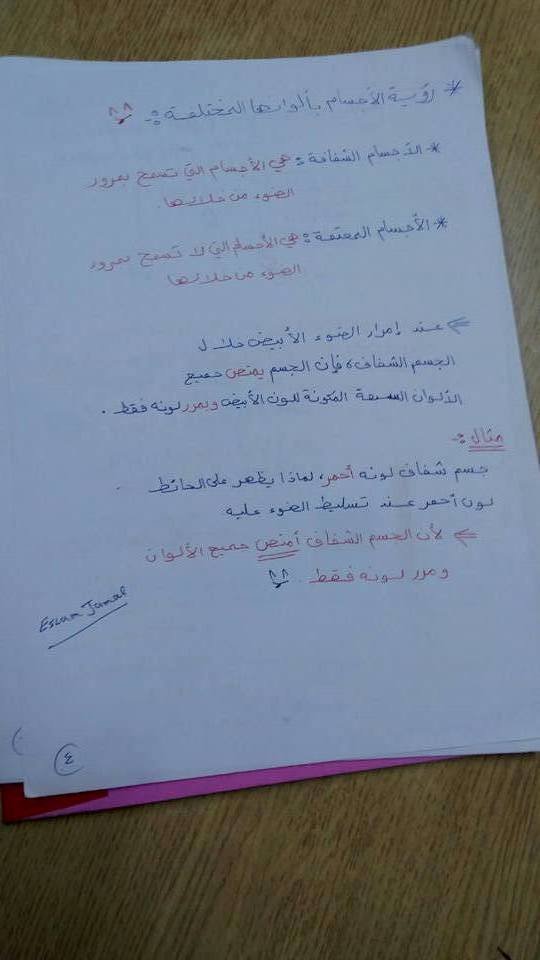 * رؤية الأجسام بألوانها المختلفة :- ^^
* الأجسام الشفافة : هي الأجسام التي تسمح بمرور
الضوء من خلالها.
* الأجسام المعتمة : هي الأجسام التي لا تسمح بمرور
الضوء من خلالها
⇐ عند إمرار الضوء الأبيض خلال
الجسم الشفاف، فإن الجسم يمتص جميع
الألوان السبعة المكونة للون الأبيض ويمرر لونه فقط .
مثال :-
جسم شفاف لونه أحمر، لماذا يظهر على الحائط
لون أحمر عند تسليط الضوء عليه
⇐ لأن الجسم الشفاف أمتص جميع الألوان
ومرر لونه فقط . ^^
Eslam Jamal
٤